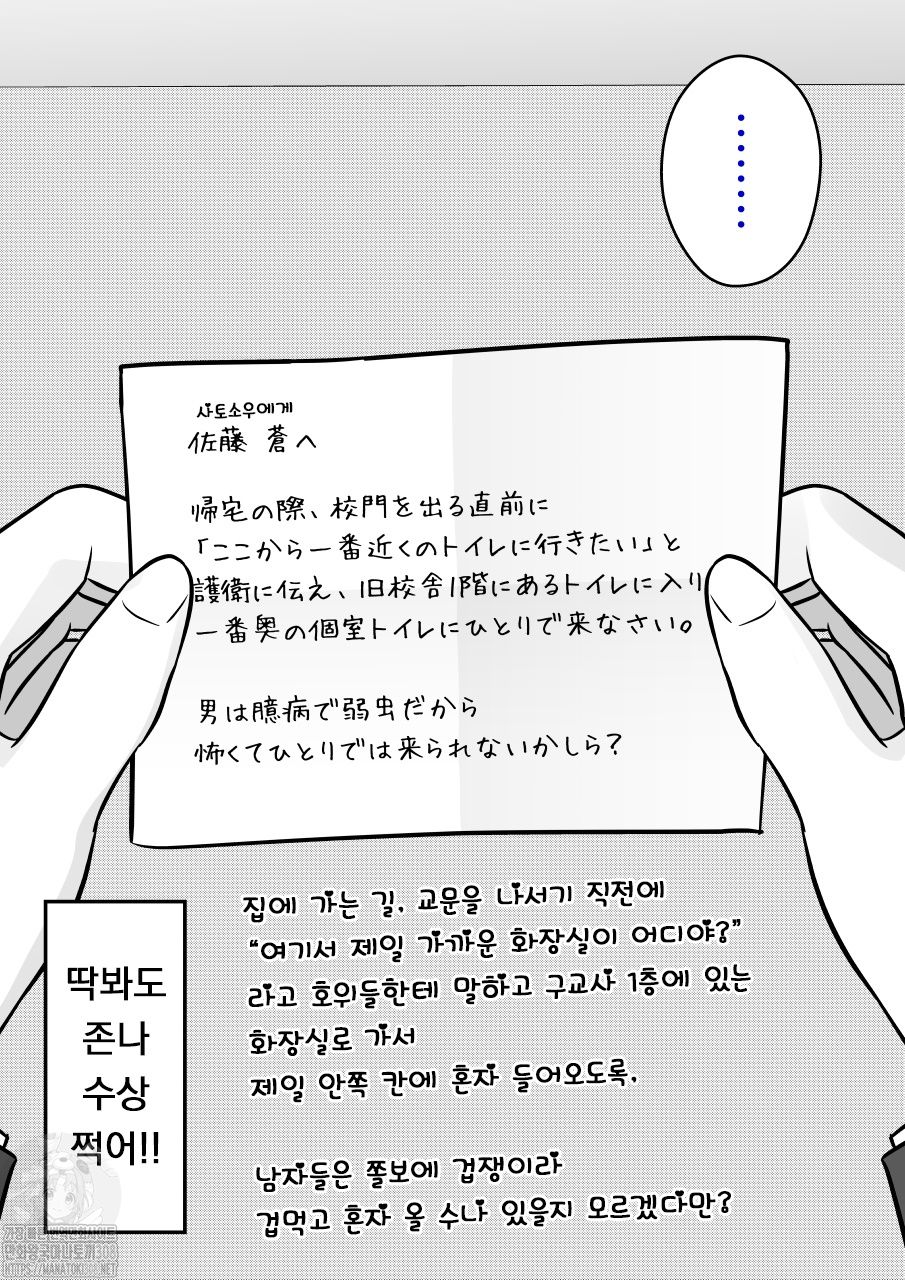 ………
사토소우에게
佐藤 蒼へ
帰宅の際、校門を出る直前に
「ここから一番近くのトイレに行きたい」と
護衛に伝え、旧校舎1階にあるトイレに入り
一番奥の個室トイレにひとりで来なさい。
男は臆病で弱虫だから
怖くてひとりでは来られないかしら?
집에 가는 길, 교문을 나서기 직전에
“여기서 제일 가까운 화장실이 어디야?”
라고 호위들한테 말하고 구교사 1층에 있는
화장실로 가서
제일 안쪽 칸에 혼자 들어오도록.
남자들은 쫄보에 겁쟁이라
겁먹고 혼자 올 수나 있을지 모르겠다만?
딱봐도
존나
수상
쩍어!!
만화왕국마나토끼308
HTTPS://MANATOKI308.NET